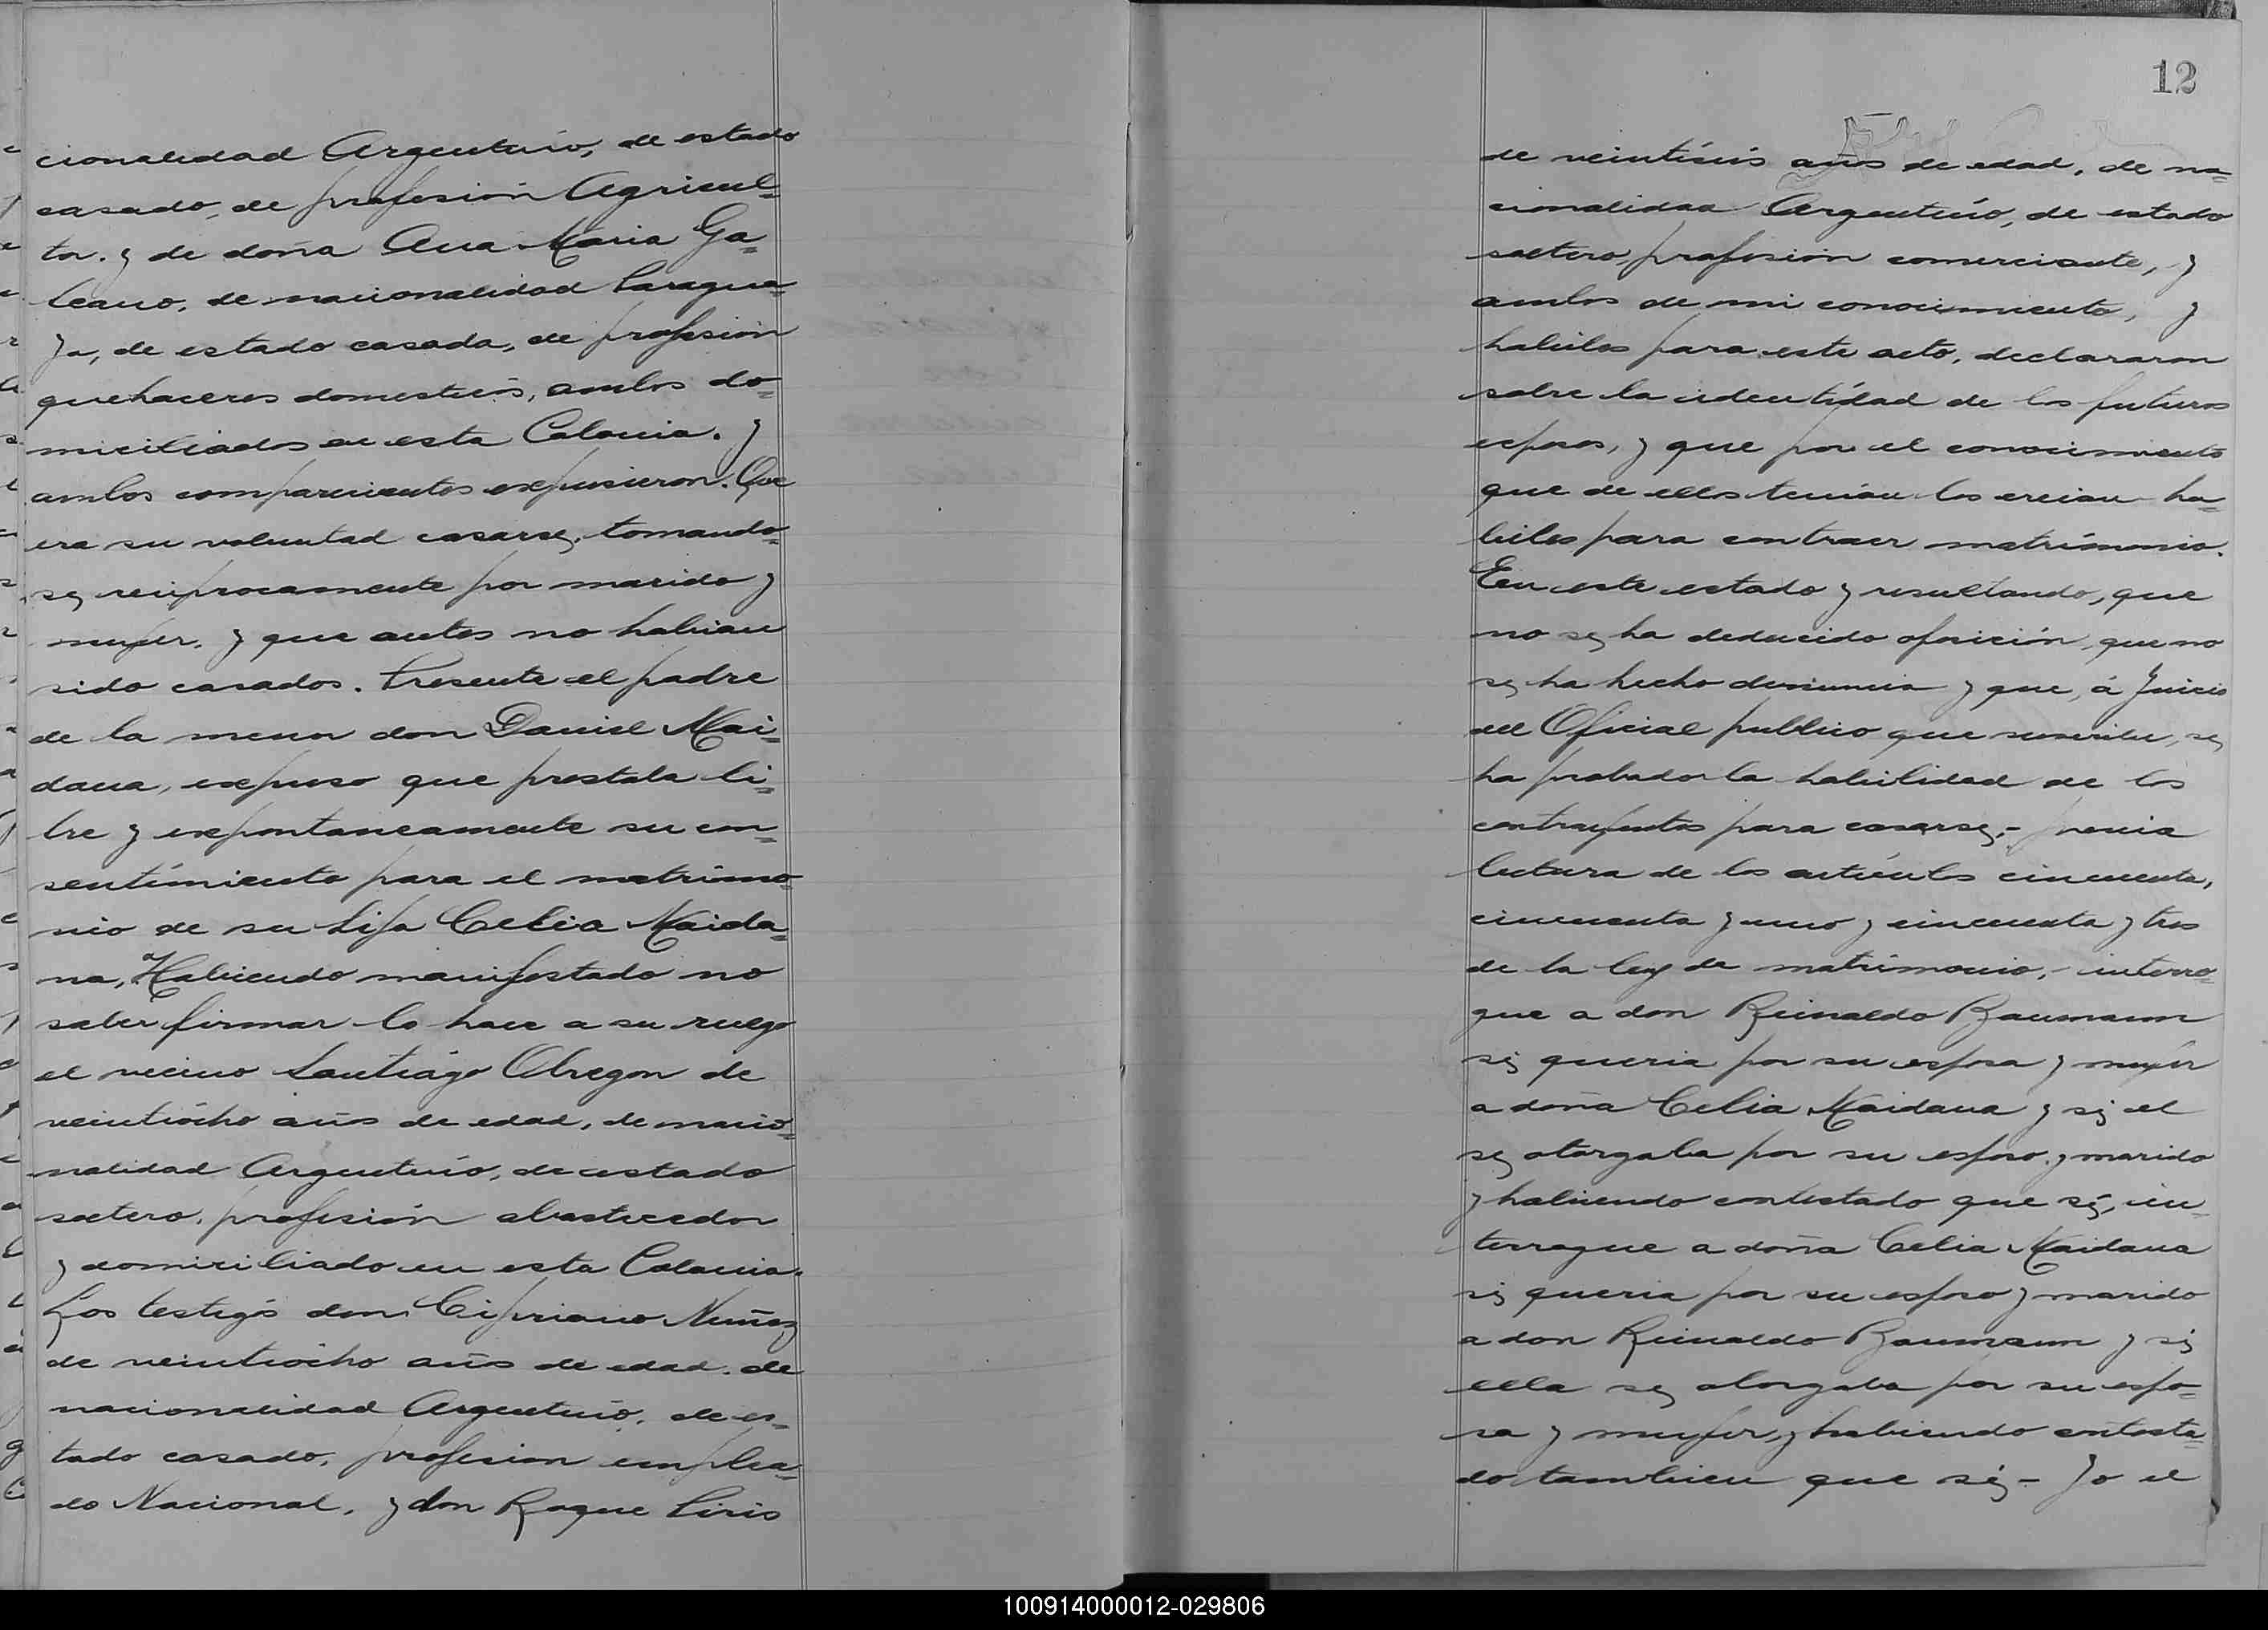 cionalidad Argentino, de estado
casado, de profesión Agricul=
tor. y de doña Ana Maria Ga=
leano, de nacionalidad Paragua=
ya, de estado casada, de profesión
quehaceres domesticos, ambos do=
miciliados en esta Colonia. y
ambos comparecientes expusieron. Que
era su voluntad casarse, tomando=
se reciprocamente por marido y
mujer. y que antes no habian
sido casados. Presente el padre
de la menor don Daniel Mai=
dana, expuso que prestaba li=
bre y expontaneamente su con=
sentimiento para el matrimo=
nio de su hija Celia Maida=
na, Habiendo manifestado no
saber firmar lo hace a su ruego
el vecino Santiágo Obregon de
veintiocho años de edad, de nacio=
nalidad Argentino, de estado
soltero. profesión abastecedor
y domiciliado en esta Colonia.
Los testigos don Cipriano Nuñez
de veintiocho años de edad. de
nacionalidad Argentino. de es=
tado casado, profesion emplea=
do Nacional, y don Roque Piris
12
de veintiseis años de edad, de na=
cionalidad Argentino, de estado
soltero, profesión comerciante, y
ambos de mi conocimiento, y
habiles para este acto, declararon
sobre la identidad de los futuros
esposos, y que por el conocimiento
que de ellos tenian los creian ha=
biles para contraer matrimonio.
En este estado y resultando, que
no se ha deducido oposición, que no
se ha hecho denuncia y que, á Juicio
del Oficial publico que suscribe, se
ha probado la habilidad de los
contrayentes para casarse,- previa
lectura de los artículos cincuenta,
cincuenta y uno y cincuenta y tres
de la ley de matrimonio,- interro=
gue a don Reinaldo Baumann
si queria por su esposa y mujer
a doña Celia Maidana y si el
se otorgaba por su esposo y marido
y habiendo contestado que si, in=
terrogue a doña Celia Maidana
si queria por su esposo y marido
a don Reinaldo Baumann y si
ella se otorgaba por su espo=
sa y mujer, y habiendo contesta=
do tambien que si,- Yo el
100914000012-029806